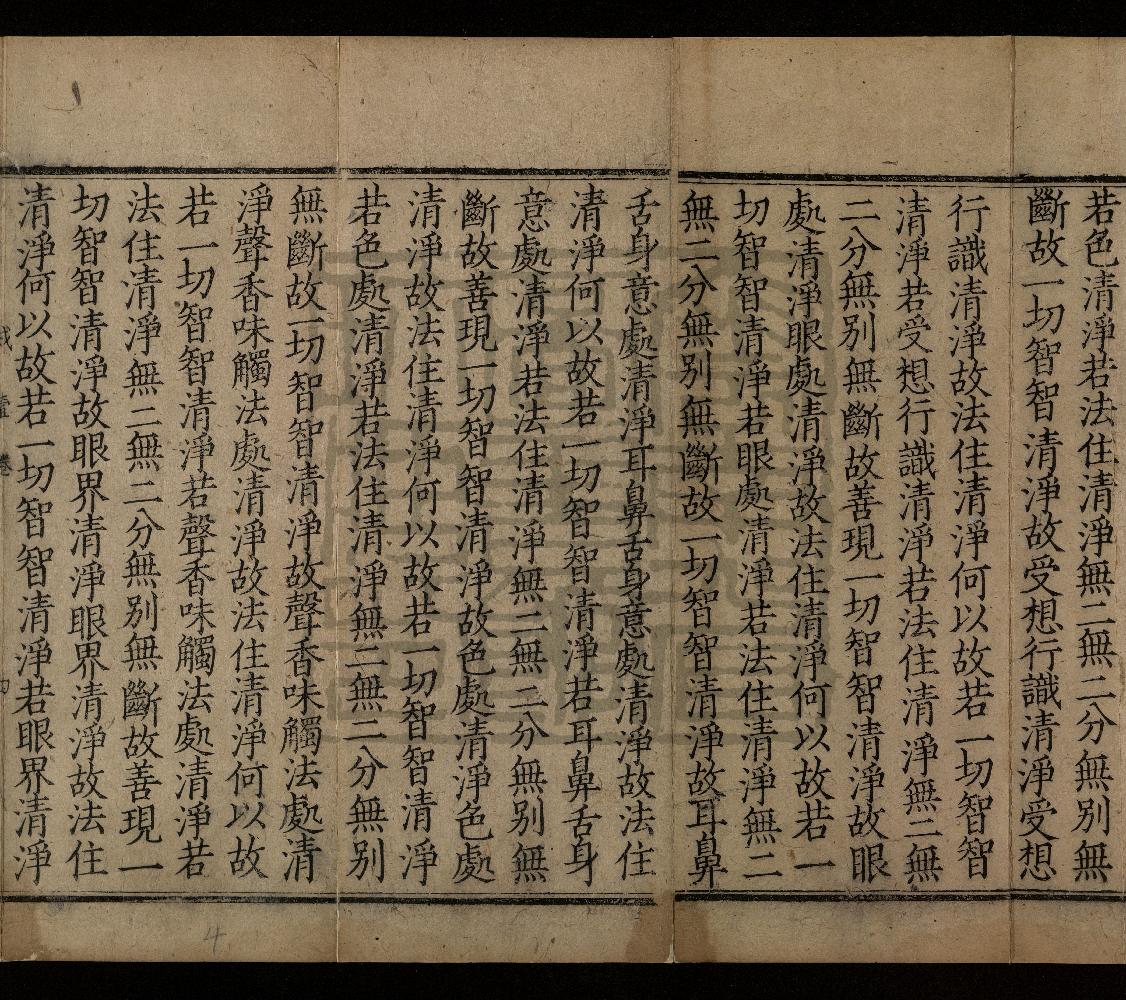 若色清淨若法住清淨無二無二分無別無
斷故一切智智清淨故受想行識清淨受想
行識清淨故法住清淨何以故若一切智智
清淨若受想行識清淨若法住清淨無二無
二分無別無斷故善現一切智智清淨故眼
處清淨眼處清淨故法住清淨何以故若一
切智智清淨若眼處清淨若法住清淨無二
無二分無別無斷故一切智智清淨故耳鼻
舌身意處清淨耳鼻舌身意處清淨故法住
清淨何以故若一切智智清淨若耳鼻舌身
意處清淨若法住清淨無二無二分無別無
斷故善現一切智智清淨故色處清淨色處
清淨故法住清淨何以故若一切智智清淨
若色處清淨若法住清淨無二無二分無別
無斷故一切智智清淨故聲香味觸法處清
淨聲香味觸法處清淨故法住清淨何以故
若一切智智清淨若聲香味觸法處清淨若
法住清淨無二無二分無別無斷故善現一
切智智清淨故眼界清淨眼界清淨故法住
清淨何以故若一切智智清淨若眼界清淨
4